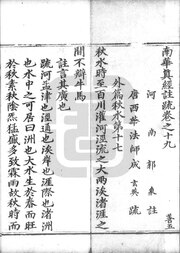 南華真經註疏卷之十九
河南郭象註
唐西華法師成玄英疏
外篇秋水第十七
秋水時至百川灌河涇流之大兩涘渚涯之
間不辯牛馬
註言其廣也
疏河孟津也涇通也涘岸也涯際也渚洲
也水中之可居曰洲也大水生於春而旺
於秋素秋陰炁猛盛多致霖雨故秋時而